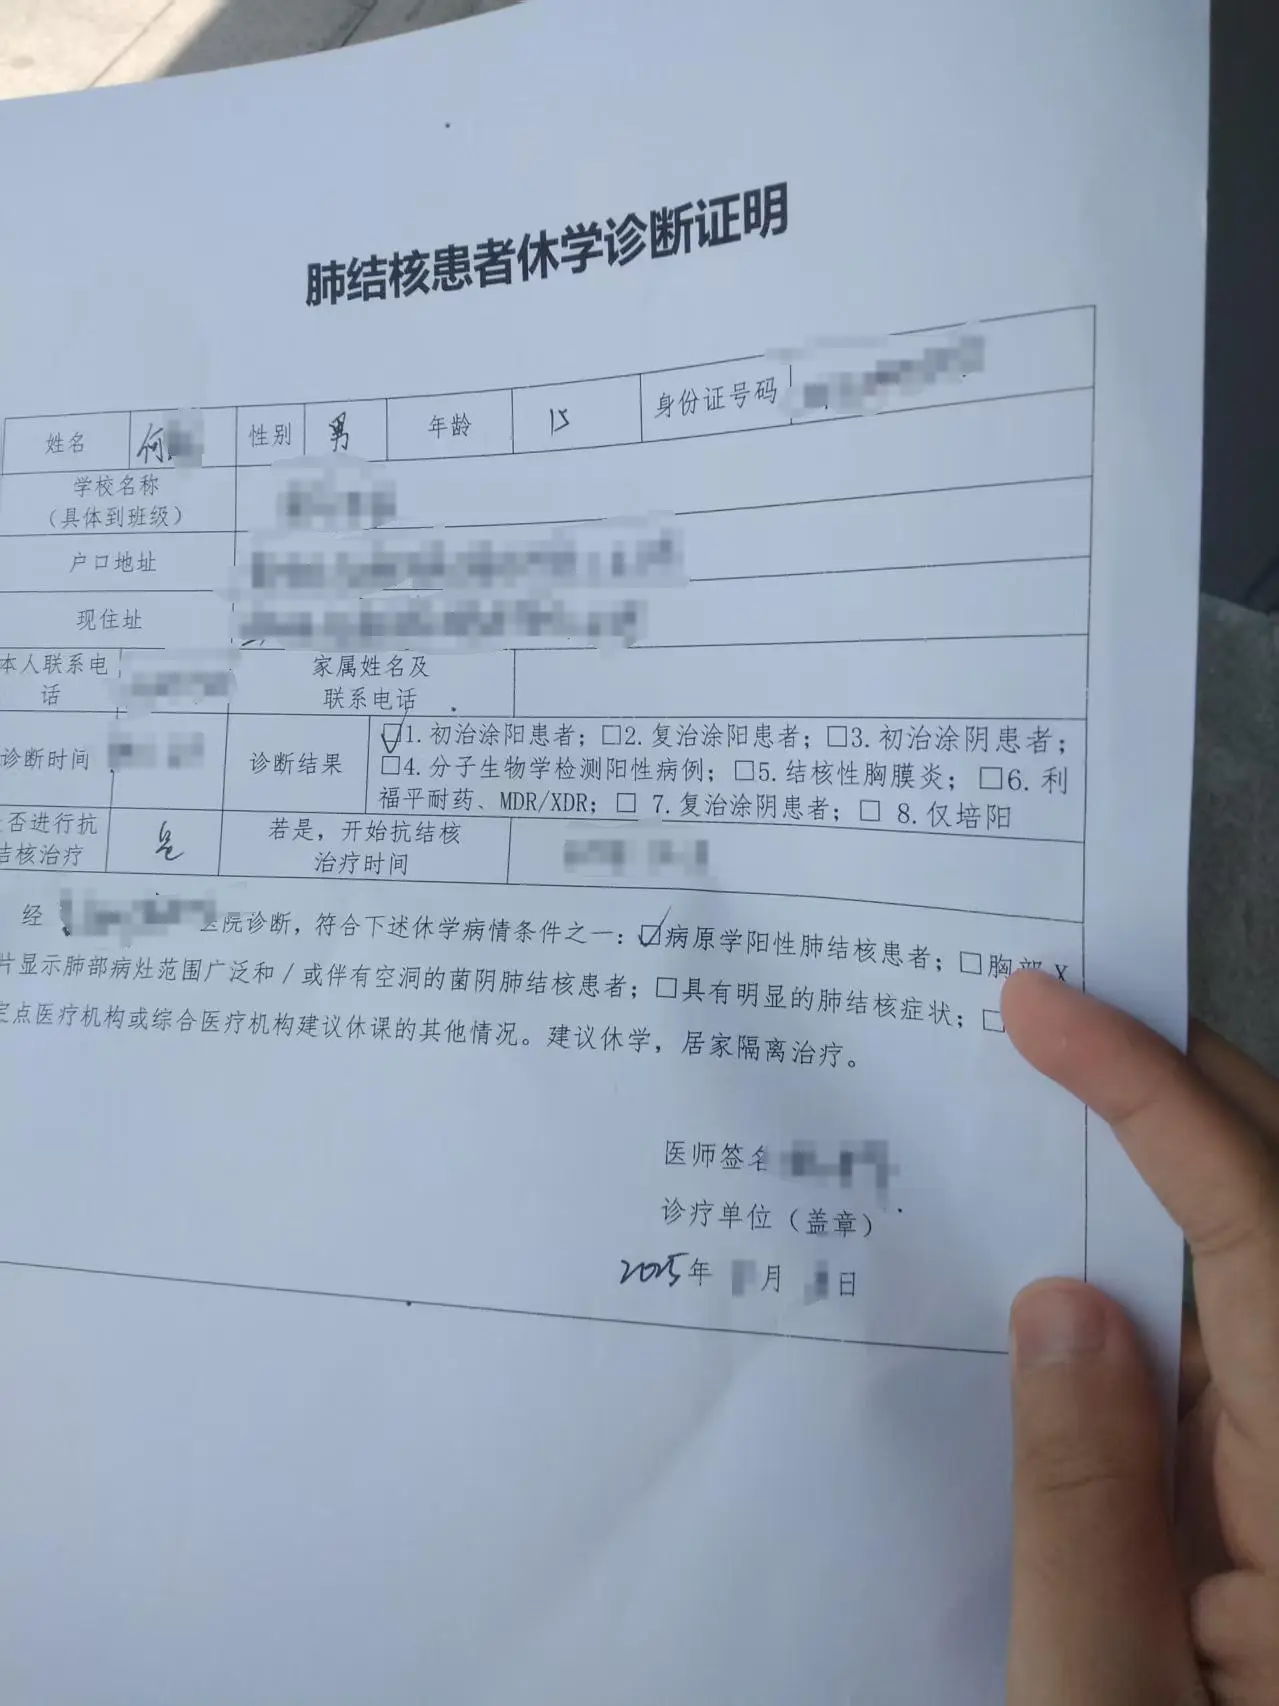 肺结核患者休学诊断证明
姓名 何 性别 男 年龄 15 身份证号码
学校名称
（具体到班级）
户口地址
现住址
本人联系电
话
家属姓名及
联系电话
诊断时间
诊断结果
☑1.初治涂阳患者；□2.复治涂阳患者；□3.初治涂阴患者；
□4.分子生物学检测阳性病例；□5.结核性胸膜炎；□6.利
福平耐药、MDR/XDR；□ 7.复治涂阴患者；□ 8.仅培阳
否进行抗
结核治疗
若是，开始抗结核
治疗时间
经 医院诊断，符合下述休学病情条件之一：☑病原学阳性肺结核患者；□胸部 X
片显示肺部病灶范围广泛和/或伴有空洞的菌阴肺结核患者；□具有明显的肺结核症状；□
定点医疗机构或综合医疗机构建议休课的其他情况。建议休学，居家隔离治疗。
医师签名
诊疗单位（盖章）
2025年 月 日